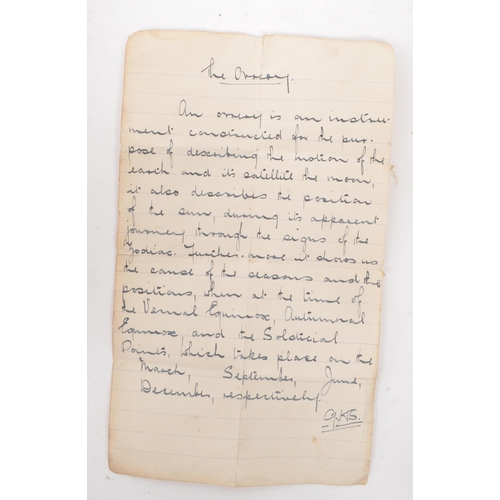 The Orrery.
An orrery is an instru-
ment constructed for the pur-
pose of describing the motion of the
earth and its satellite the moon,
it also describes the position
of the sun, during its apparent
journey through the signs of the
Zodiac. Further-more it shows us
the cause of the seasons and the
positions, when at the time of
the Vernal Equinox, Autumnal
Equinox, and the Solsticial
Points, which takes place on the
March, September, June,
December, respectively.
G.K.S.